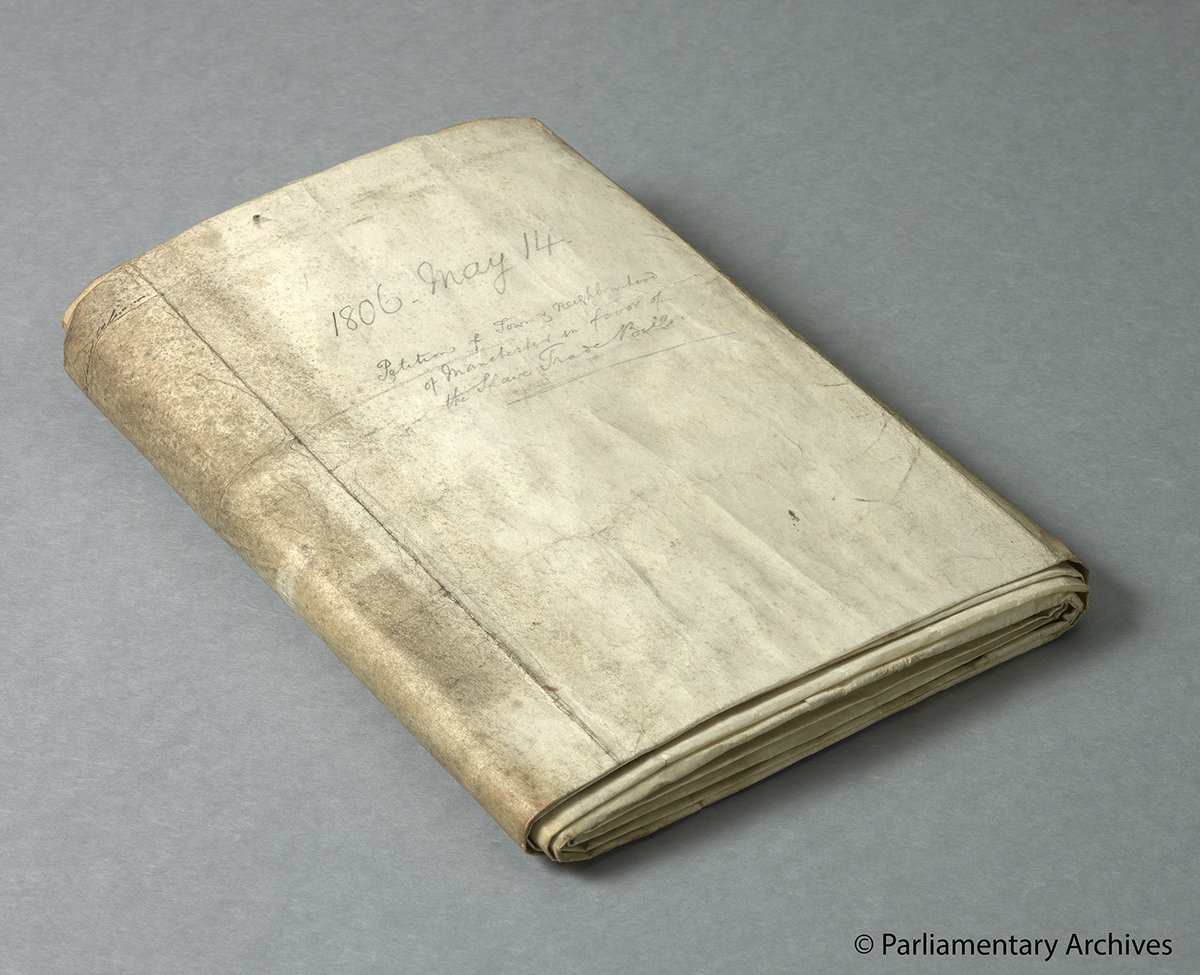 1806. May 14.
Petition of Town & Neighbourhood
of Manchester in favor of
the Slave Trade Bill.
© Parliamentary Archives